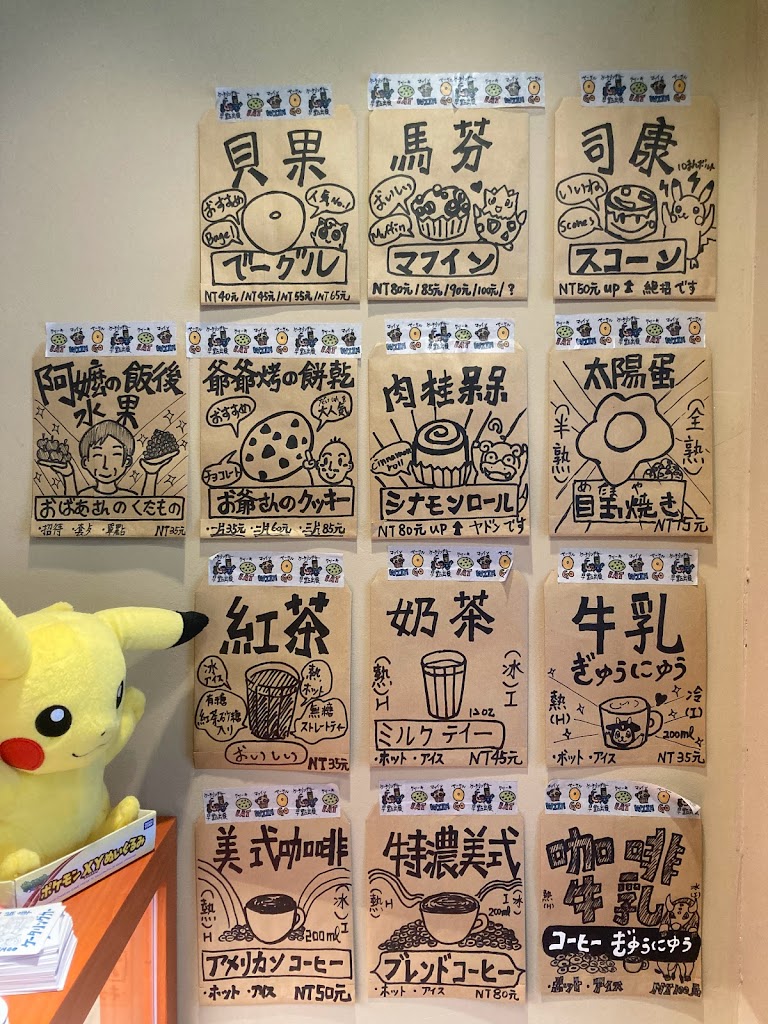 貝果
おすすめ
人気No.1
Bagel
でーグル
NT40元/NT45元/NT55元/NT65元
馬芬
おいしい
Muffin
マフイン
NT80元/85元/90元/100元/?
司康
10まんボルト
いいね
Scones
スコーン
NT50元 up 絶招です
阿嬤の飯後
水果
おばあさんのくだもの
·招待 ·套歺 ·單點 NT35元
爺爺烤の餅乾
おすすめ
大人気
チョコレート
お爺さんのクッキー
·一片35元 ·二片60元 ·三片85元
肉桂呆呆
Cinnamon roll
シナモンロール
NT80元 up ヤドンです
太陽蛋
(半熟)
(全熟)
めだまや
目玉焼き
NT15元
紅茶
冰
アイス
熱
ホット
有糖
紅茶砂糖
入り
無糖
ストレートティー
おいしい
NT35元
奶茶
(熱)H
(冰)I
12oz
ミルクテイー
·ホット ·アイス NT45元
牛乳
ぎゅうにゆう
熱(H)
冷(I)
200ml
·ホット ·アイス NT35元
美式咖啡
(熱)H
(冰)I
200ml
アメリカンコーヒー
·ホット ·アイス NT50元
特濃美式
(熱)H
(冰)I
200ml
ブレンドコーヒー
·ホット ·アイス NT80元
咖啡
牛乳
熱(H)
コーヒー ぎゅうにゆう
·ホット ·アイス NT100元
ポケモンXYぬいぐるみ